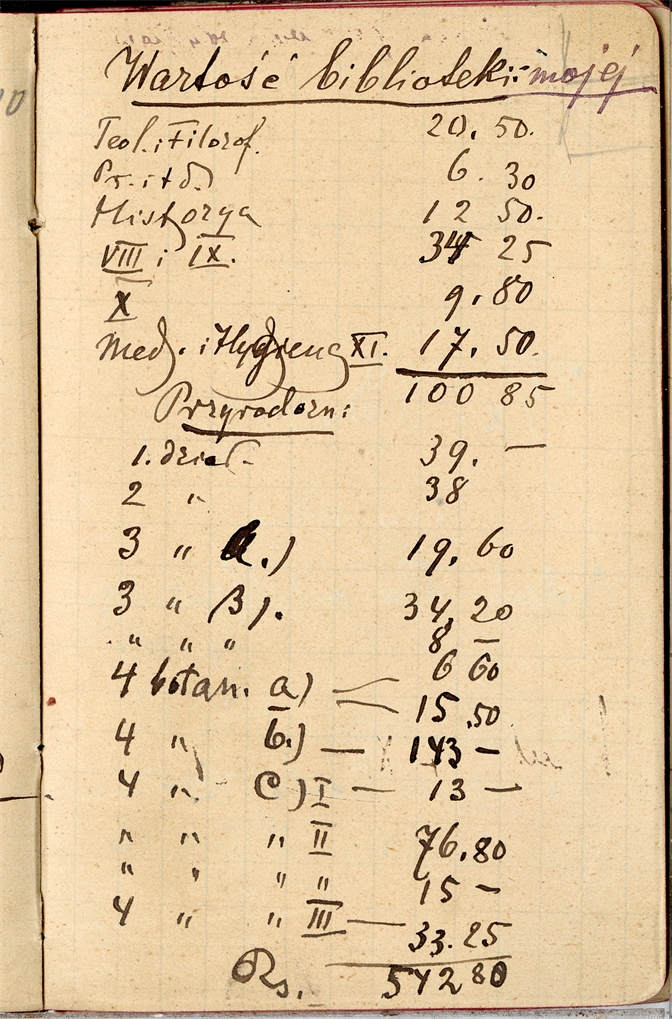 Wartość biblioteki: mojej
Teol. i Filozof. 20. 50.
Pr. i t d. 6. 30
Historya 12 50.
VIII i IX. 34 25
X 9. 80
Med. i Hygiena XI. 17. 50.
100 85
Przyrodozn:
1. dział. 39. —
2 " 38
3 " a.) 19, 60
3 " β). 34, 20
" " " 8 —
4 botan. a) 6 60
15. 50
4 " b.) — 143 —
4 " c) I — 13 —
" " " II 76. 80
" " " " 15 —
4 " " III — 33. 25
Rs. 542 80